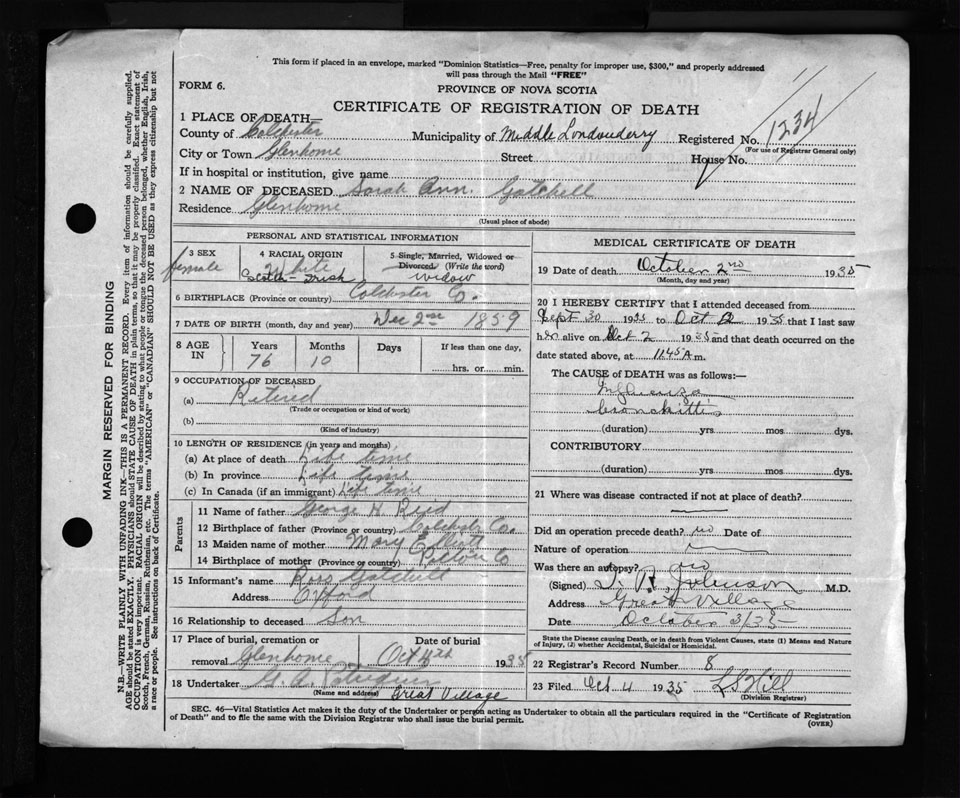 This form if placed in an envelope, marked "Dominion Statistics—Free, penalty for improper use, $300," and properly addressed
will pass through the Mail "FREE"
FORM 6.
PROVINCE OF NOVA SCOTIA
CERTIFICATE OF REGISTRATION OF DEATH
1 PLACE OF DEATH—
County of Colchester Municipality of Middle Londonderry Registered No. 1234
(For use of Registrar General only)
City or Town Glenholme Street House No.
If in hospital or institution, give name
2 NAME OF DECEASED Sarah Ann. Gatchell
Residence Glenholme
(Usual place of abode)
PERSONAL AND STATISTICAL INFORMATION
3 SEX female
4 RACIAL ORIGIN White
Scotch-Irish
5 Single, Married, Widowed or
Divorced (Write the word)
widow
6 BIRTHPLACE (Province or country) Colchester Co.
7 DATE OF BIRTH (month, day and year) Dec 2nd 1859
8 AGE IN Years Months Days If less than one day,
76 10 hrs. or min.
9 OCCUPATION OF DECEASED
(a) Retired
(Trade or occupation or kind of work)
(b)
(Kind of industry)
10 LENGTH OF RESIDENCE (in years and months)
(a) At place of death Life time
(b) In province Life time
(c) In Canada (if an immigrant) Life time
Parents
11 Name of father George H Reid
12 Birthplace of father (Province or country) Colchester Co.
13 Maiden name of mother Mary Elliott
14 Birthplace of mother (Province or country) Co
15 Informant's name Ross Gatchell
Address Oxford
16 Relationship to deceased Son
17 Place of burial, cremation or
removal Glenholme
Date of burial
Oct 4th 1935
18 Undertaker G. A.
(Name and address) Great Village
MEDICAL CERTIFICATE OF DEATH
19 Date of death October 2nd 1935
(Month, day and year)
20 I HEREBY CERTIFY that I attended deceased from
Sept 30 1935 to Oct 2 1935 that I last saw
her alive on Oct 2 1935 and that death occurred on the
date stated above, at 11.45 A m.
The CAUSE of DEATH was as follows:—
Influenza
bronchitis
(duration) yrs mos dys.
CONTRIBUTORY
(duration) yrs mos dys.
21 Where was disease contracted if not at place of death?
Did an operation precede death? no Date of
Nature of operation
Was there an autopsy? no
(Signed) T. R. Johnson M.D.
Address Great Village
Date October 3/35
State the Disease causing Death, or in death from Violent Causes, state (1) Means and Nature
of Injury, (2) whether Accidental, Suicidal or Homicidal.
22 Registrar's Record Number 8
23 Filed Oct 4 1935 L S Hill
(Division Registrar)
SEC. 46—Vital Statistics Act makes it the duty of the Undertaker or person acting as Undertaker to obtain all the particulars required in the "Certificate of Registration
of Death" and to file the same with the Division Registrar who shall issue the burial permit.
(OVER)
MARGIN RESERVED FOR BINDING
N.B.—WRITE PLAINLY WITH UNFADING INK—THIS IS A PERMANENT RECORD. Every item of information should be carefully supplied.
AGE should be stated EXACTLY. PHYSICIANS should STATE CAUSE OF DEATH in plain terms, so that it may be properly classified. Exact statement of
OCCUPATION is very important. RACIAL ORIGIN will be described by stating to what people or tongue the deceased person belonged, whether English, Irish,
Scotch, French, German, Russian, Ruthenian, etc. The terms "AMERICAN" or "CANADIAN" SHOULD NOT BE USED as they express citizenship but not
a race or people. See instructions on back of Certificate.